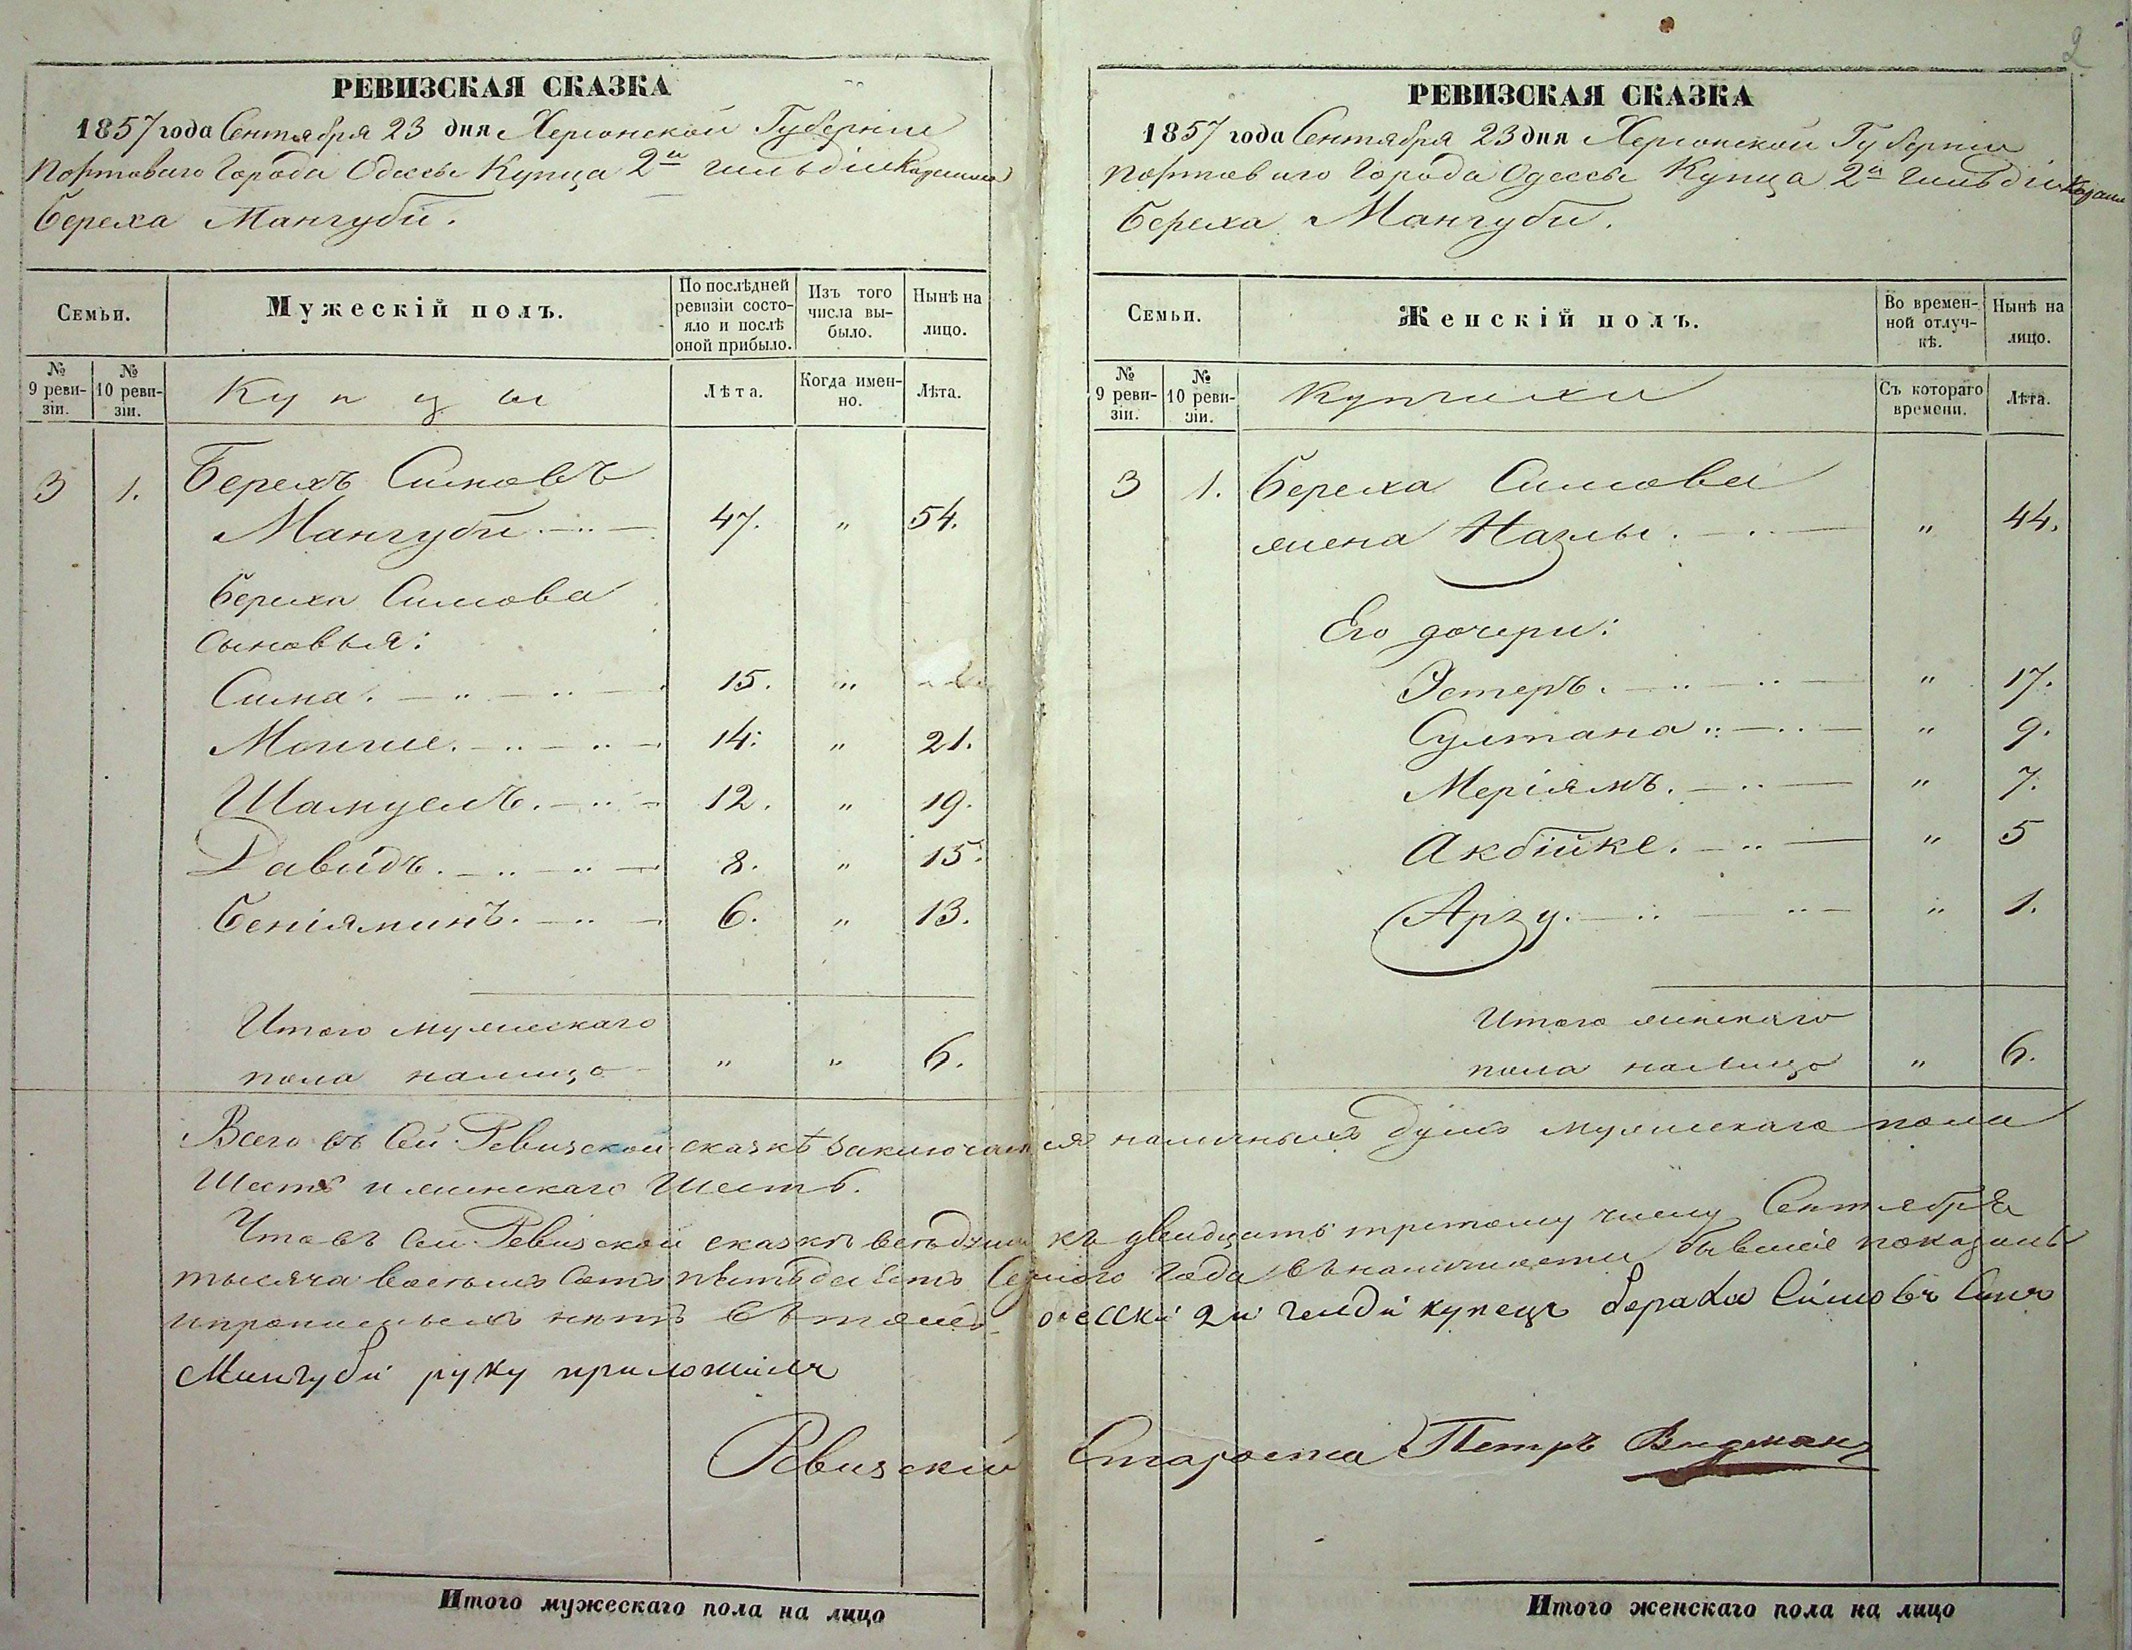 2
РЕВИЗСКАЯ СКАЗКА
1857 года Сентября 23 дня Херсонской Губерніи
Портоваго Города Одессы Купца 2й гильдіи Караима
Береха Мангуби.
Семьи.
Мужескій полъ.
По послѣдней ревизіи состо-
яло и послѣ
оной прибыло.
Изъ того
числа вы-
было.
Нынѣ на
лицо.
№
9 реви-
зіи.
№
10 реви-
зіи.
Купцы
Лѣта.
Когда имен-
но.
Лѣта.
3 1. Берехъ Симовъ
Мангуби. 47. " 54.
Береха Симова
сыновья:
Сима. 15. "
Моише. 14. " 21.
Шамуелъ. 12. " 19.
Давидъ. 8. " 15.
Беніяминъ. 6. " 13.
Итого мужескаго
пола налицо " " 6.
РЕВИЗСКАЯ СКАЗКА
1857 года Сентября 23 дня Херсонской Губерніи
Портоваго Города Одессы Купца 2й гильдіи
Береха Мангуби.
Семьи.
Женскій полъ.
Во времен-
ной отлуч-
кѣ.
Нынѣ на
лицо.
№
9 реви-
зіи.
№
10 реви-
зіи.
Купчихи
Съ котораго
времени.
Лѣта.
3 1. Береха Симова
жена Назлы. " 44.
Его дочери:
Эстеръ. " 17.
Султана " 9.
Меріямъ. " 7.
Акбійке. " 5
Арзу. " 1.
Итого женскаго
пола налицо " 6.
Всего въ сей Ревизской сказкѣ заключается наличныхъ душъ мужескаго пола
Шесть и женскаго Шесть.
Что въ сей Ревизской сказкѣ всѣ души къ двадцать третьему числу Сентября
тысяча восемь сотъ пятьдесятъ седмого года въ наличности бывшіе показаны
и прописныхъ нѣтъ въ томъ одесски 2й гилди купецъ Бераха Симовъ Синъ
Мангуби руку приложилъ
Ревизскій Староста Петръ Видманъ
Итого мужескаго пола на лицо
Итого женскаго пола на лицо